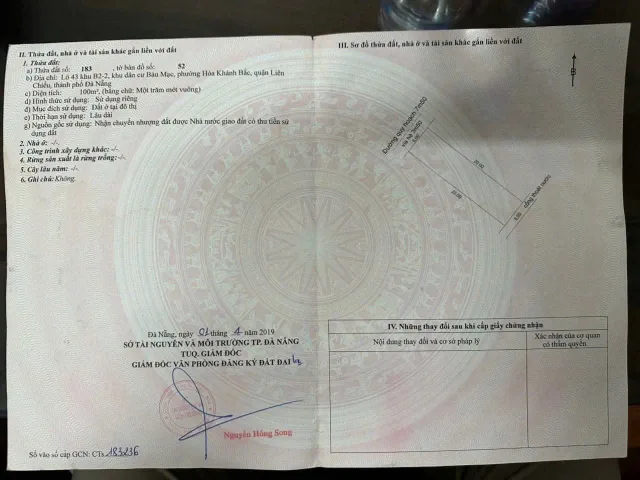 II. Thửa đất, nhà ở và tài sản khác gắn liền với đất
1. Thửa đất:
a) Thửa đất số: 183 , tờ bản đồ số: 52
b) Địa chỉ: Lô 43 khu B2-2, khu dân cư Bàu Mạc, phường Hòa Khánh Bắc, quận Liên
Chiểu, thành phố Đà Nẵng
c) Diện tích: 100m², (bằng chữ: Một trăm mét vuông)
d) Hình thức sử dụng: Sử dụng riêng
đ) Mục đích sử dụng: Đất ở tại đô thị
e) Thời hạn sử dụng: Lâu dài
g) Nguồn gốc sử dụng: Nhận chuyển nhượng đất được Nhà nước giao đất có thu tiền sử
dụng đất
2. Nhà ở: -/-.
3. Công trình xây dựng khác: -/-.
4. Rừng sản xuất là rừng trồng: -/-.
5. Cây lâu năm: -/-.
6. Ghi chú: Không.
Đà Nẵng, ngày 01 tháng 4 năm 2019
SỞ TÀI NGUYÊN VÀ MÔI TRƯỜNG TP. ĐÀ NẴNG
TUQ. GIÁM ĐỐC
GIÁM ĐỐC VĂN PHÒNG ĐĂNG KÝ ĐẤT ĐAI
Nguyễn Hồng Song
Số vào sổ cấp GCN: CTs 183236
III. Sơ đồ thửa đất, nhà ở và tài sản khác gắn liền với đất
B
Đường quy hoạch 7m50
vỉa hè 3m50
5.00
20.00
20.00
5.00
cống thoát nước
IV. Những thay đổi sau khi cấp giấy chứng nhận
Nội dung thay đổi và cơ sở pháp lý
Xác nhận của cơ quan
có thẩm quyền